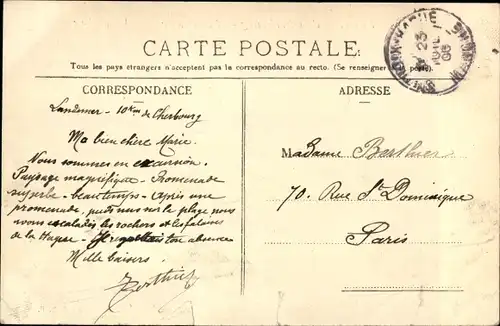 CARTE POSTALE
Tous les pays étrangers n'acceptent pas la correspondance au recto. (Se renseigner poste).
CORRESPONDANCE
ADRESSE
Landemer - 10 Km de Cherbourg
Ma bien chère Marie.
Nous sommes en excursion.
Paysage magnifique - Promenade
superbe - beau temps - Après une
promenade, pieds nus sur la plage nous
avons escaladés les rochers et les falaises
de la Hague - Je ton absence
Mille baisers.
Madame
70, Rue St Dominique
Paris
23